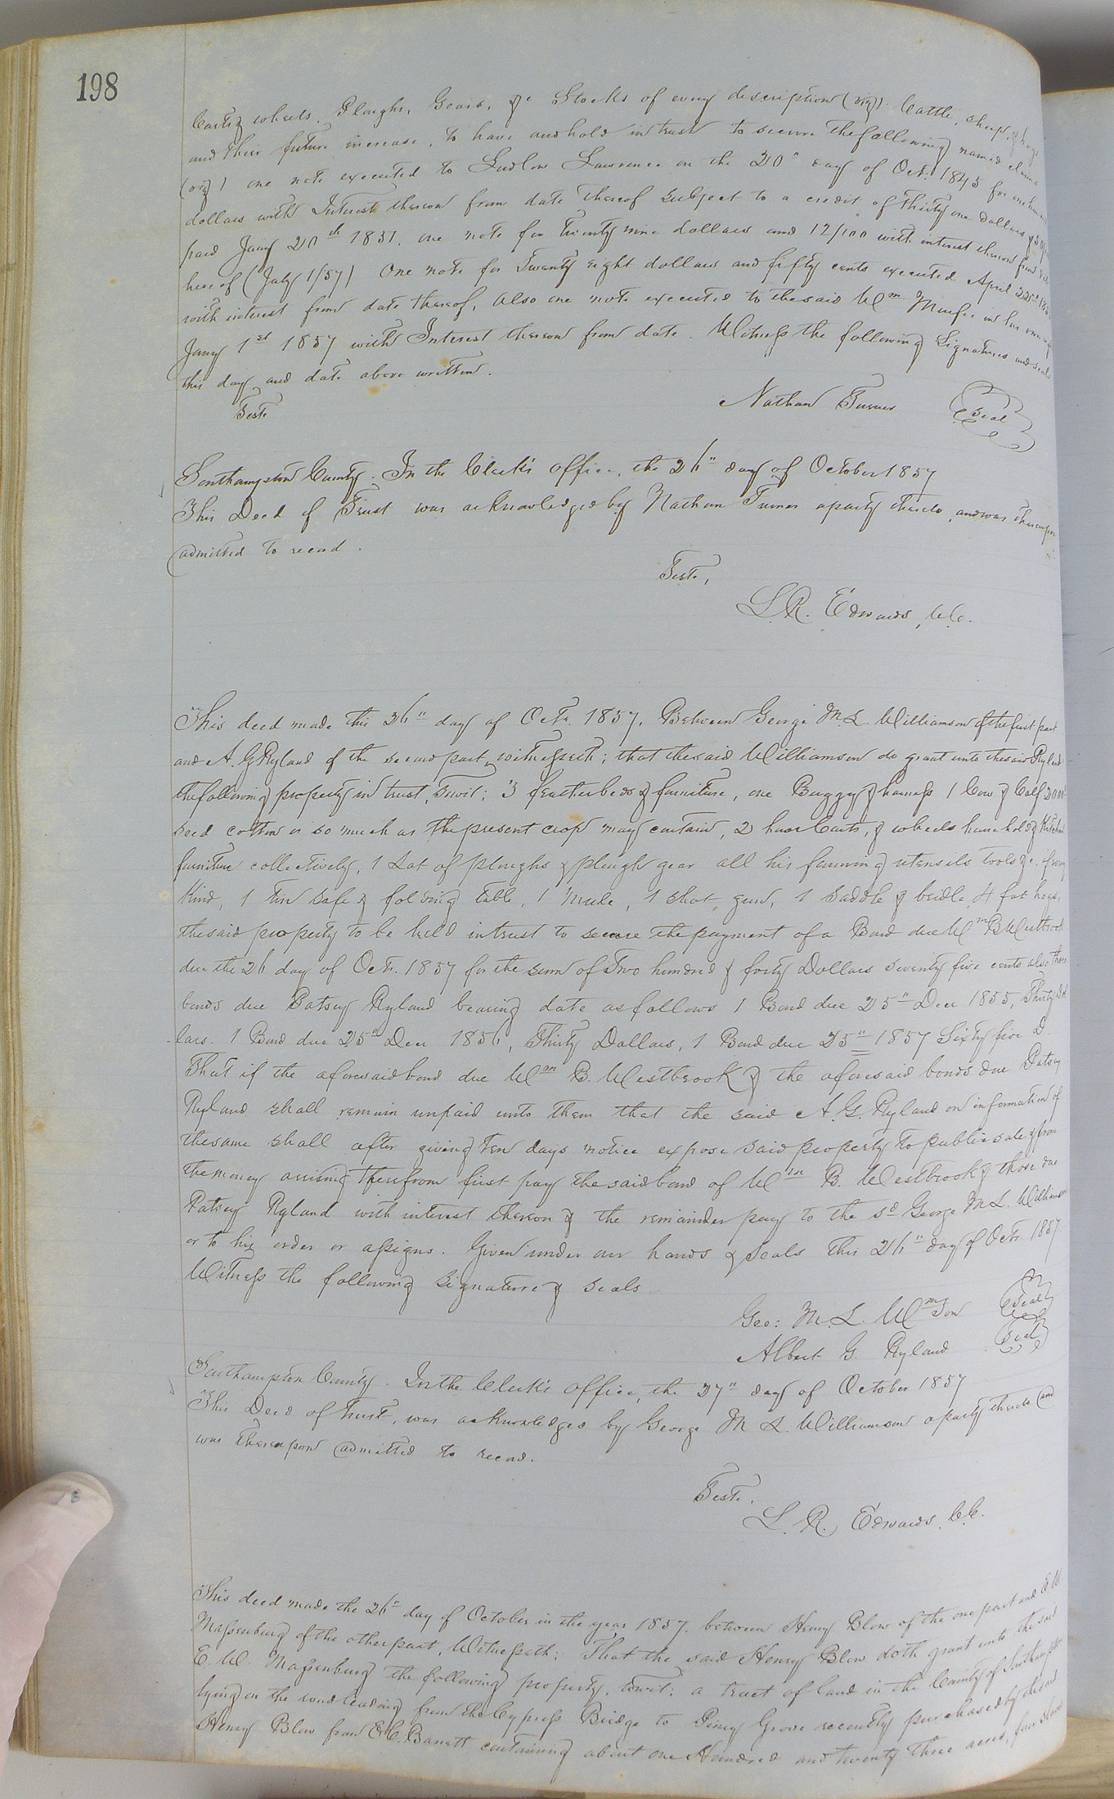 198
Carts, wheels, Ploughs, Gears, &c Stocks of every description (viz) Cattle, sheep, & hogs
and their future increase, to have and hold in trust to secure the following named claims
(viz) one note executed to Ludlow Lawrence on the 20th day of Oct. 1845 for
dollars with Interest thereon from date thereof subject to a credit of thirty one dollars
paid Jany 20th 1851, one note for Twenty nine dollars and 12/100 with interest thereon from
hereof (July 1/57) One note for Twenty eight dollars and fifty cents executed April
with interest from date thereof, Also one note executed to the said Wm
Jany 1st 1857 with Interest thereon from date. Witness the following Signatures and seals
this day and date above written.
Teste
Nathan Turner (Seal)
Southampton County. In the Clerk's office, the 26th day of October 1857
This Deed of Trust was acknowledged by Nathan Turner a party thereto, and was thereupon
admitted to record.
Teste,
L. R. Edwards, C.C.
This deed made this 26th day of Oct. 1857, Between George M. L. Williamson of the first part
and A. G. Ryland of the second part, witnesseth; that the said Williamson do grant unto the said Ryland
the following property in trust, towit: 3 featherbeds & furniture, one Buggy & harness 1 Cow & Calf
seed cotton or so much as the present crop may contain, 2 horse Carts, & wheels household & Kitchen
furniture collectively, 1 Lot of ploughs & plough gear all his farming utensils tools &c of every
Kind, 1 tin safe & folding table, 1 Mule, 1 shot gun, 1 saddle & bridle, 4 fat hogs,
the said property to be held in trust to secure the payment of a Bond due Wm B Westbrook
due the 26 day of Oct. 1857 for the sum of Two hundred & forty Dollars seventy five cents also three
bonds due Patsey Ryland bearing date as follows 1 Bond due 25th Decr 1855, Thirty Dol
lars. 1 Bond due 25th Decr 1856, Thirty Dollars, 1 Bond due 25th 1857 Sixty five D
That if the aforesaid bond due Wm B. Westbrook & the aforesaid bonds due Patsey
Ryland shall remain unpaid unto them that the said A. G. Ryland on information of
the same shall after giving ten days notice expose said property to public sale & from
the money arising therefrom first pay the said bond of Wm B. Westbrook & those due
Patsey Ryland with interest thereon & the remainder pay to the sd George M. L. Williamson
or to his order or assigns. Given under our hands & seals this 26th day of Oct. 1857.
Witness the following signatures & seals
Geo: M. L. Wmson (Seal)
Albert G. Ryland (Seal)
Southampton County. In the Clerk's office, the 27th day of October 1857
This Deed of trust, was acknowledged by George M L. Williamson a party thereto and
was thereupon admitted to record.
Teste,
L. R. Edwards, C.C.
This deed made the 26th day of October in the year 1857, between Henry Blow of the one part and E. W.
Massenburg of the other part, Witnesseth: That the said Henry Blow doth grant unto the said
E. W. Massenburg the following property, towit: a tract of land in the County of Southampton
lying on the road leading from the Cypress Bridge to Piney Grove recently purchased by the said
Henry Blow from E. C. Barrett containing about one Hundred and twenty three acres, four